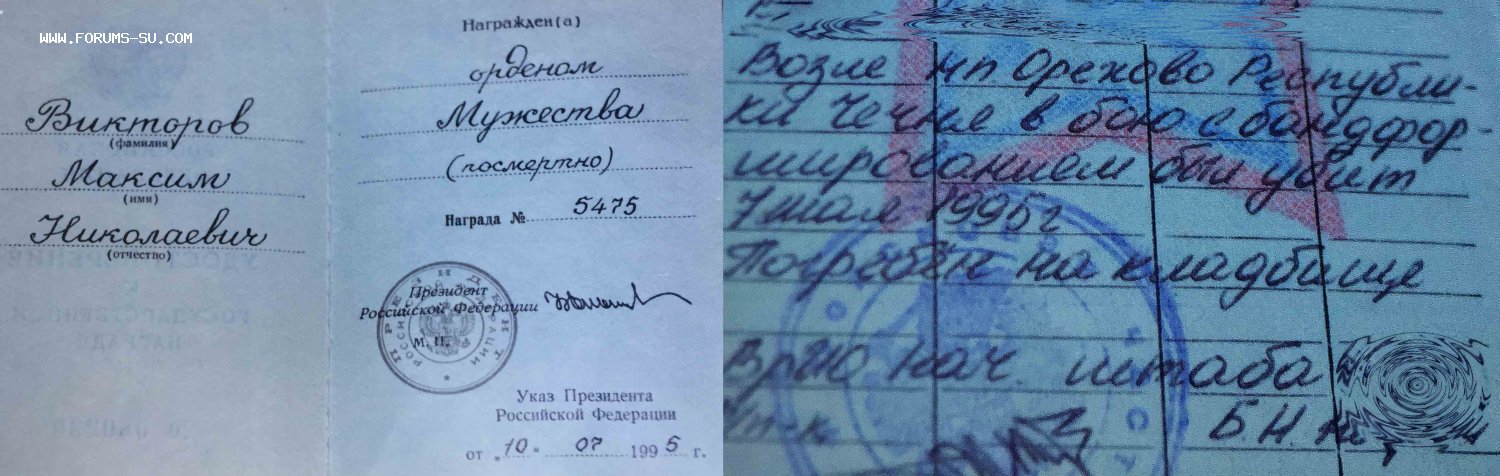 WWW.FORUMS-SU.COM
Викторов
(фамилия)
Максим
(имя)
Николаевич
(отчество)
Награжден(а)
орденом
Мужества
(посмертно)
Награда № 5475
Президент
Российской Федерации
М. П.
Указ Президента
Российской Федерации
от „10“ 07 1995 г.
Возле нп Орехово Республи-
ки Чечня в бою с бандфор-
мированием был убит
7 мая 1995г
Погребён на кладбище
Врио нач. штаба
п-к
Б.Н.